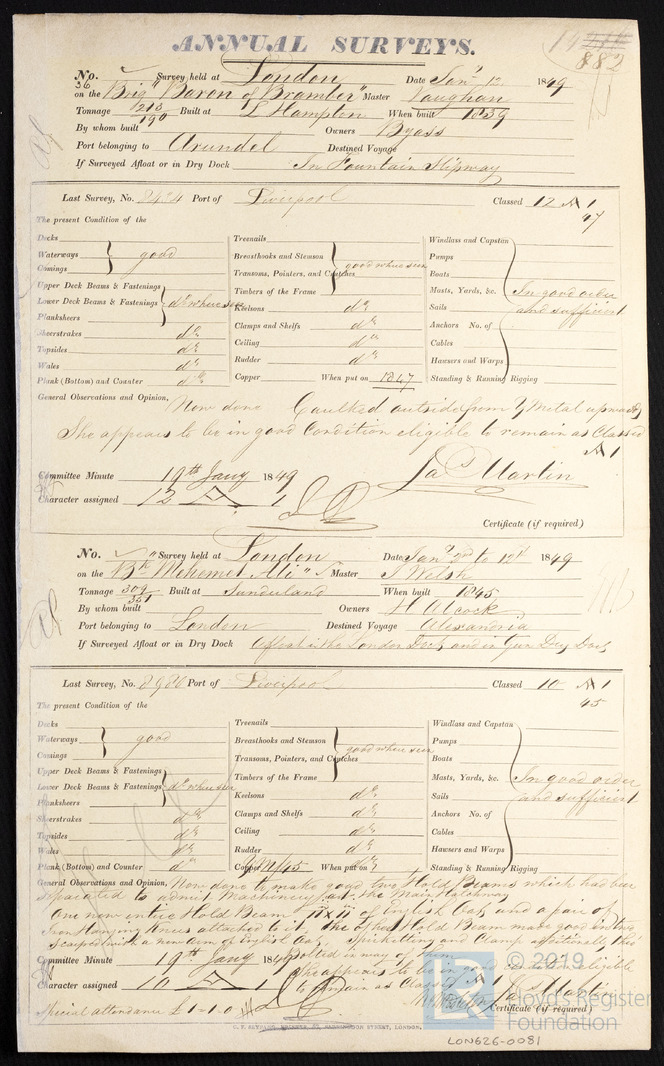 ANNUAL SURVEYS.
19
882
No. 36 Survey held at London Date Jany 12 1849
on the Brig "Baron of Bramber" Master Vaughan
Tonnage 213/190 Built at L Hampton When built 1839
By whom built Owners Byass
Port belonging to Arundel Destined Voyage
If Surveyed Afloat or in Dry Dock In Fountain Slipway
Last Survey, No. 2434 Port of Liverpool Classed 12 A 1
47
The present Condition of the
Decks
Waterways good
Comings
Upper Deck Beams & Fastenings
Lower Deck Beams & Fastenings do where seen
Planksheers
Sheerstrakes do
Topsides do
Wales do
Plank (Bottom) and Counter do
Treenails
Breasthooks and Stemson good where seen
Transoms, Pointers, and Crutches
Timbers of the Frame
Keelsons do
Clamps and Shelfs do
Ceiling do
Rudder do
Copper When put on 1847
Windlass and Capstan
Pumps
Boats
Masts, Yards, &c. In good order
Sails and sufficient
Anchors No. of
Cables
Hawsers and Warps
Standing & Running Rigging
General Observations and Opinion, Now done Caulked outside from Y Metal upwards
She appears to be in good Condition eligible to remain as Classed
A 1
Jas Martin
Committee Minute 19th Jany 1849
Character assigned 12 A 1
Certificate (if required)
No. " Survey held at London Date Jany 2nd to 12th 1849
on the Bk "Mehemet Ali" Master J Welsh
Tonnage 309/351 Built at Sunderland When built 1845
By whom built Owners H Alcock
Port belonging to London Destined Voyage Alexandria
If Surveyed Afloat or in Dry Dock Afloat in the London Dock and in Dry Dock
Last Survey, No. 8986 Port of Liverpool Classed 10 A 1
45
The present Condition of the
Decks
Waterways good
Comings
Upper Deck Beams & Fastenings
Lower Deck Beams & Fastenings do where seen
Planksheers
Sheerstrakes do
Topsides do
Wales do
Plank (Bottom) and Counter do
Treenails
Breasthooks and Stemson good where seen
Transoms, Pointers, and Crutches
Timbers of the Frame
Keelsons do
Clamps and Shelfs do
Ceiling do
Rudder do
Copper YM/45 When put on do
Windlass and Capstan
Pumps
Boats
Masts, Yards, &c. In good order
Sails and sufficient
Anchors No. of
Cables
Hawsers and Warps
Standing & Running Rigging
General Observations and Opinion, Now done to make good two Hold Beams which had been
separated to admit Machinery at the Main Hatchway
One new entire Hold Beam 11 x 11 of English Oak and a pair of
Iron Hanging Knees attached to it, the other Hold Beam made good in two
Scarphed with a new arm of English Oak Spirketting and Clamp additionally
Bolted in way of them
She appears to be in good condition eligible
to remain as Classed A 1
Jas Martin
Committee Minute 19th Jany 1849
Character assigned 10 A 1
Certificate (if required)
Special attendance £1-1-0
LON626-0081
© 2019
Lloyd's Register
Foundation